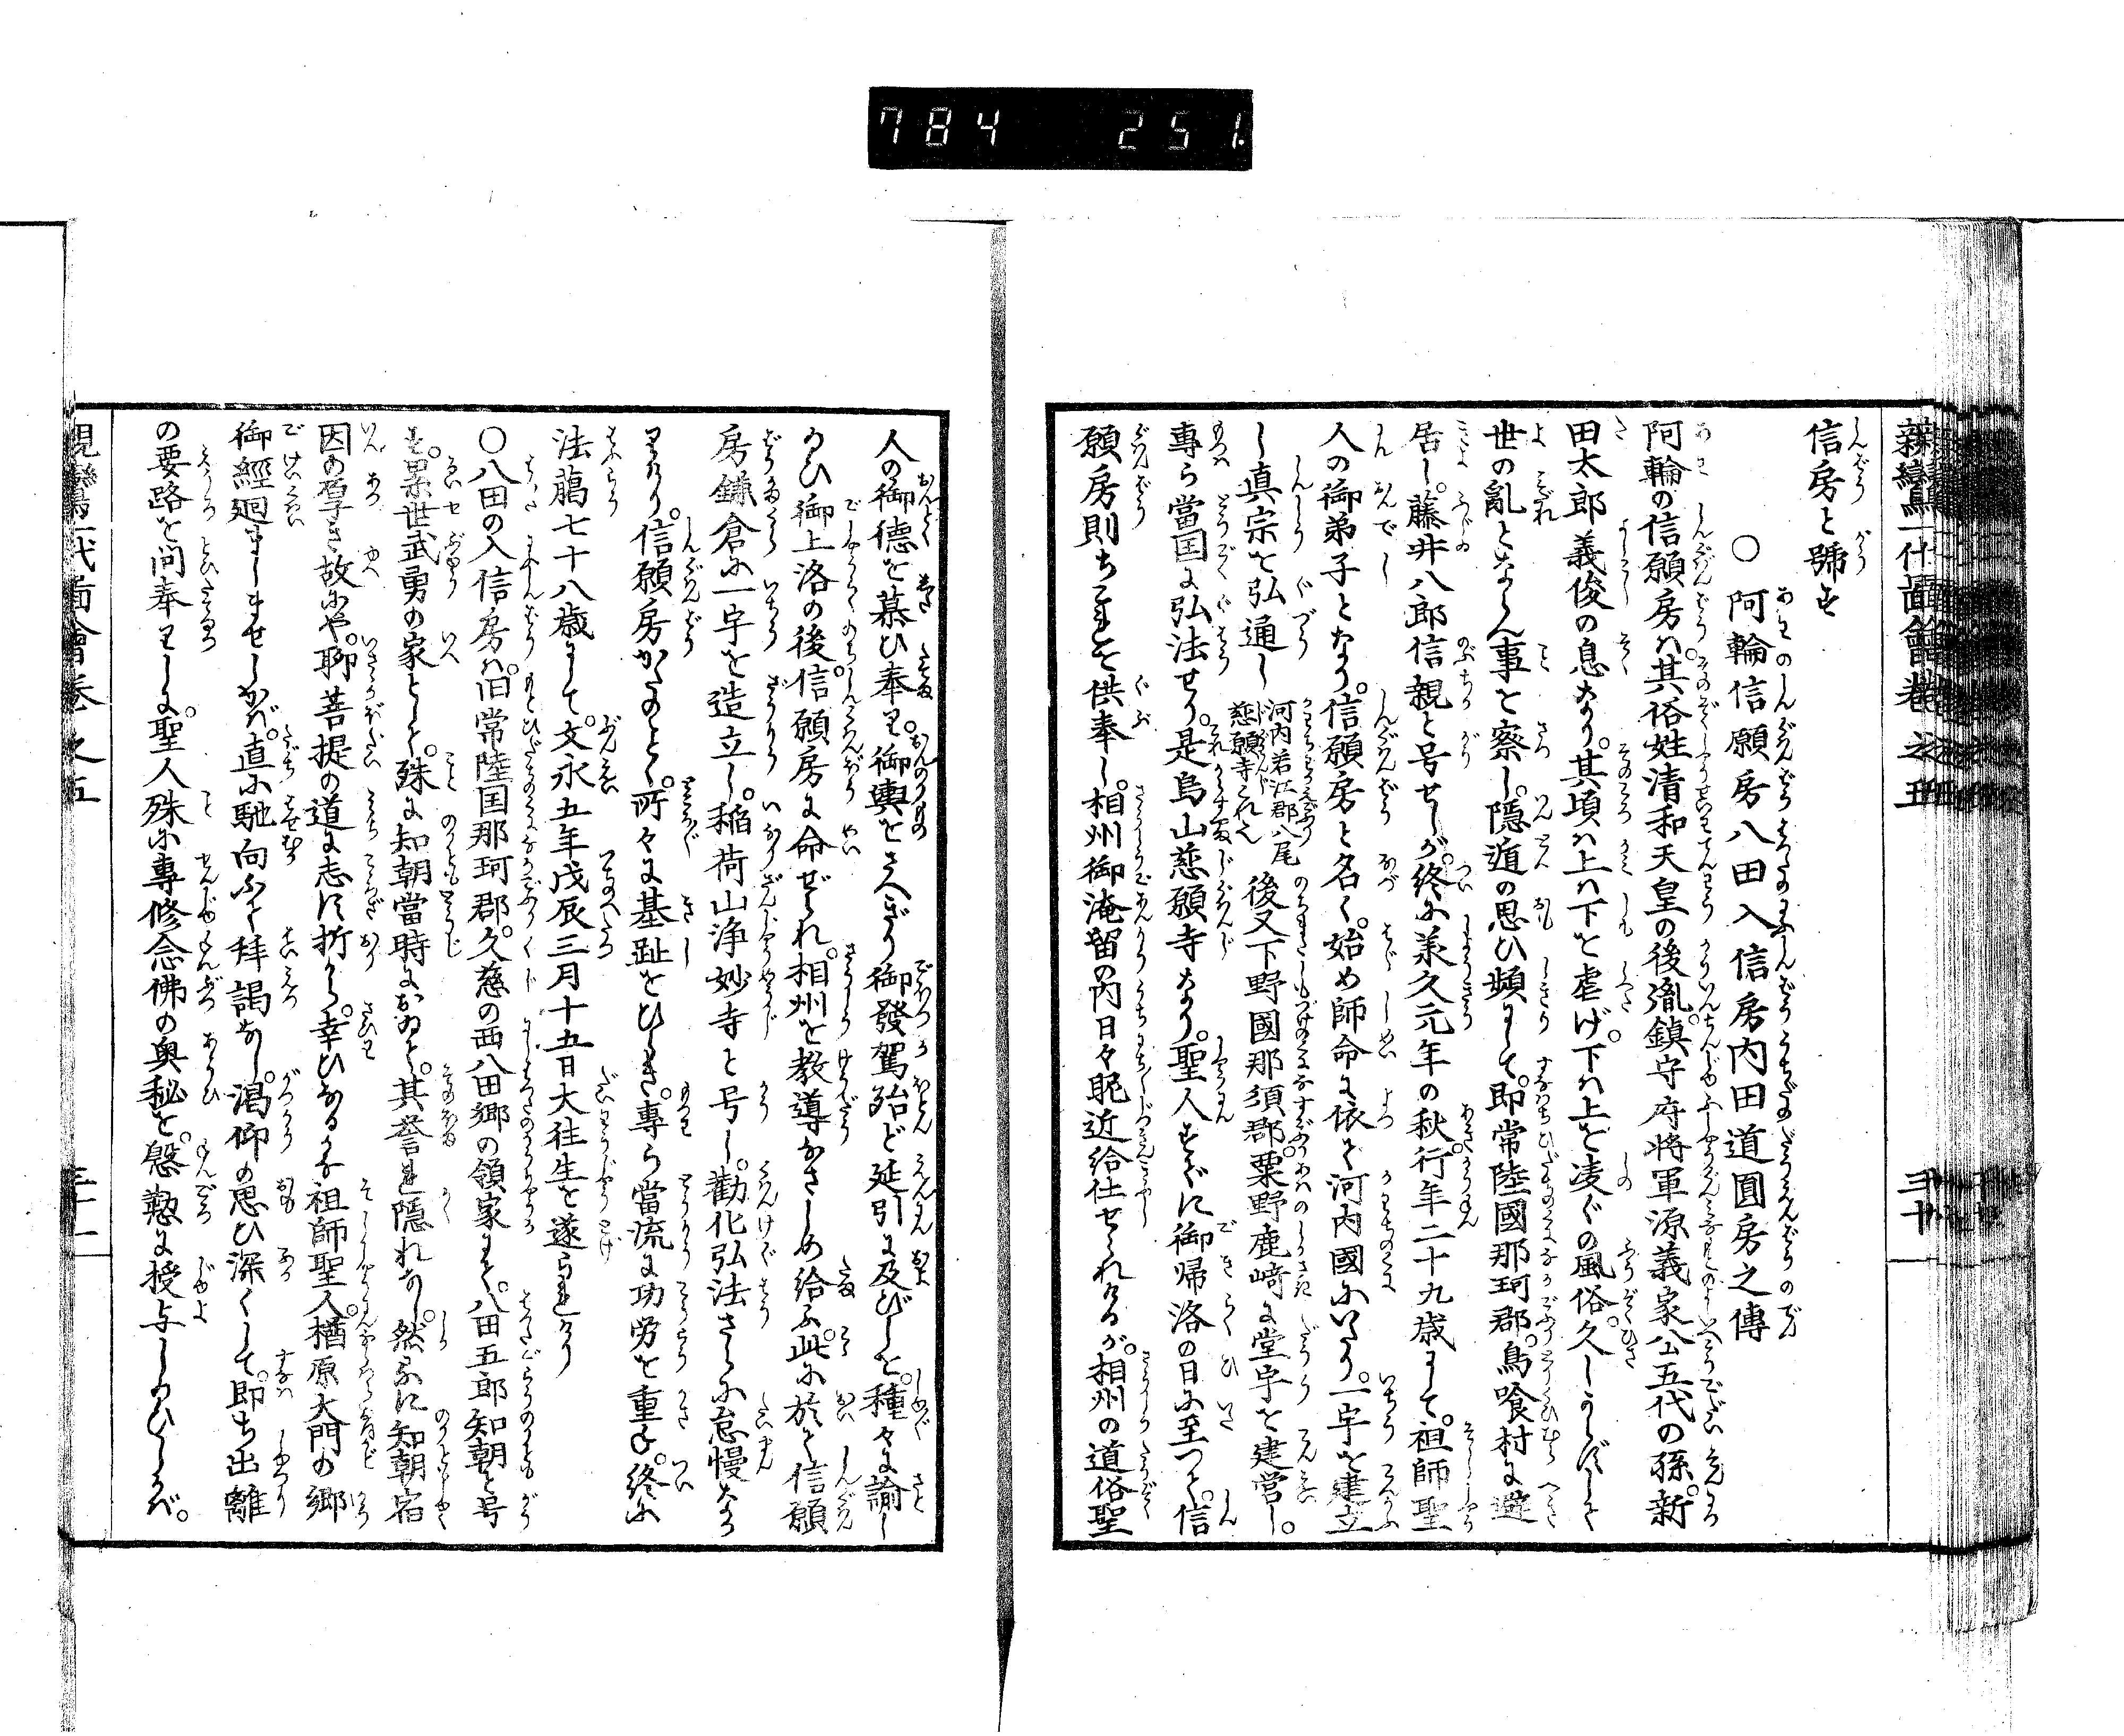 784 251.
親鸞一代圖會卷之五 三十
信房と號す
○阿輪信願房八田入信房内田道圓房之傳
阿輪の信願房ハ。其俗姓清和天皇の後胤。鎮守府將軍源義家公五代の孫。新
田太郎義俊の息なり。其頃ハ上ハ下を虐げ。下ハ上を凌ぐの風俗。久しからずして
世の亂とならん事を察し。隱遁の思ひ頻にして。即常陸國那珂郡。鳥喰村に遊
居し。藤井八郎信親と号せしが。終に承久元年の秋。行年二十九歳にして。祖師聖
人の御弟子となり。信願房と名く。始め師命に依て河内國にいたり。一宇を建立
し真宗を弘通し 河内若江郡八尾慈願寺これ也 後又下野國那須郡。粟野鹿﨑に堂宇を建営し。
專ら當国に弘法せり。是鳥山慈願寺なり。聖人すでに御帰洛の日に至つて。信
願房則ちこれを供奉し。相州御淹留の内日々眤近給仕せられけるが。相州の道俗聖
人の御德を慕ひ奉り。御輿をさへぎり御發駕殆ど延引に及びしを。種々に諭し
給ひ御上洛の後。信願房に命ぜられ。相州を教導なさしめ給ふ。此に於て信願
房鎌倉に一宇を造立し。稲荷山浄妙寺と号し。勸化弘法さらに怠慢なか
りけり。信願房かたのごとく。所々に基趾をひらき。專ら當流に功労を重ね。終に
法﨟七十八歳にして。文永五年戊辰三月十五日大往生を遂られけり
○八田の入信房ハ。旧常陸国那珂郡。久慈の西八田郷の領家にて。八田五郎知朝と号
す。累世武勇の家として。殊に知朝當時において。其誉れ隱れなし。然るに知朝宿
因の厚き故にや。聊菩提の道に志す折から。幸ひなるかな祖師聖人。楢原大門の郷
御經廻ましませしかバ。直に馳向ふて拜謁なし。渇仰の思ひ深くして。即ち出離
の要路を問奉りしに。聖人殊に專修念佛の奥秘を。慇懃に授与し給ひしかバ。
親鸞一代圖會卷之五 三十一